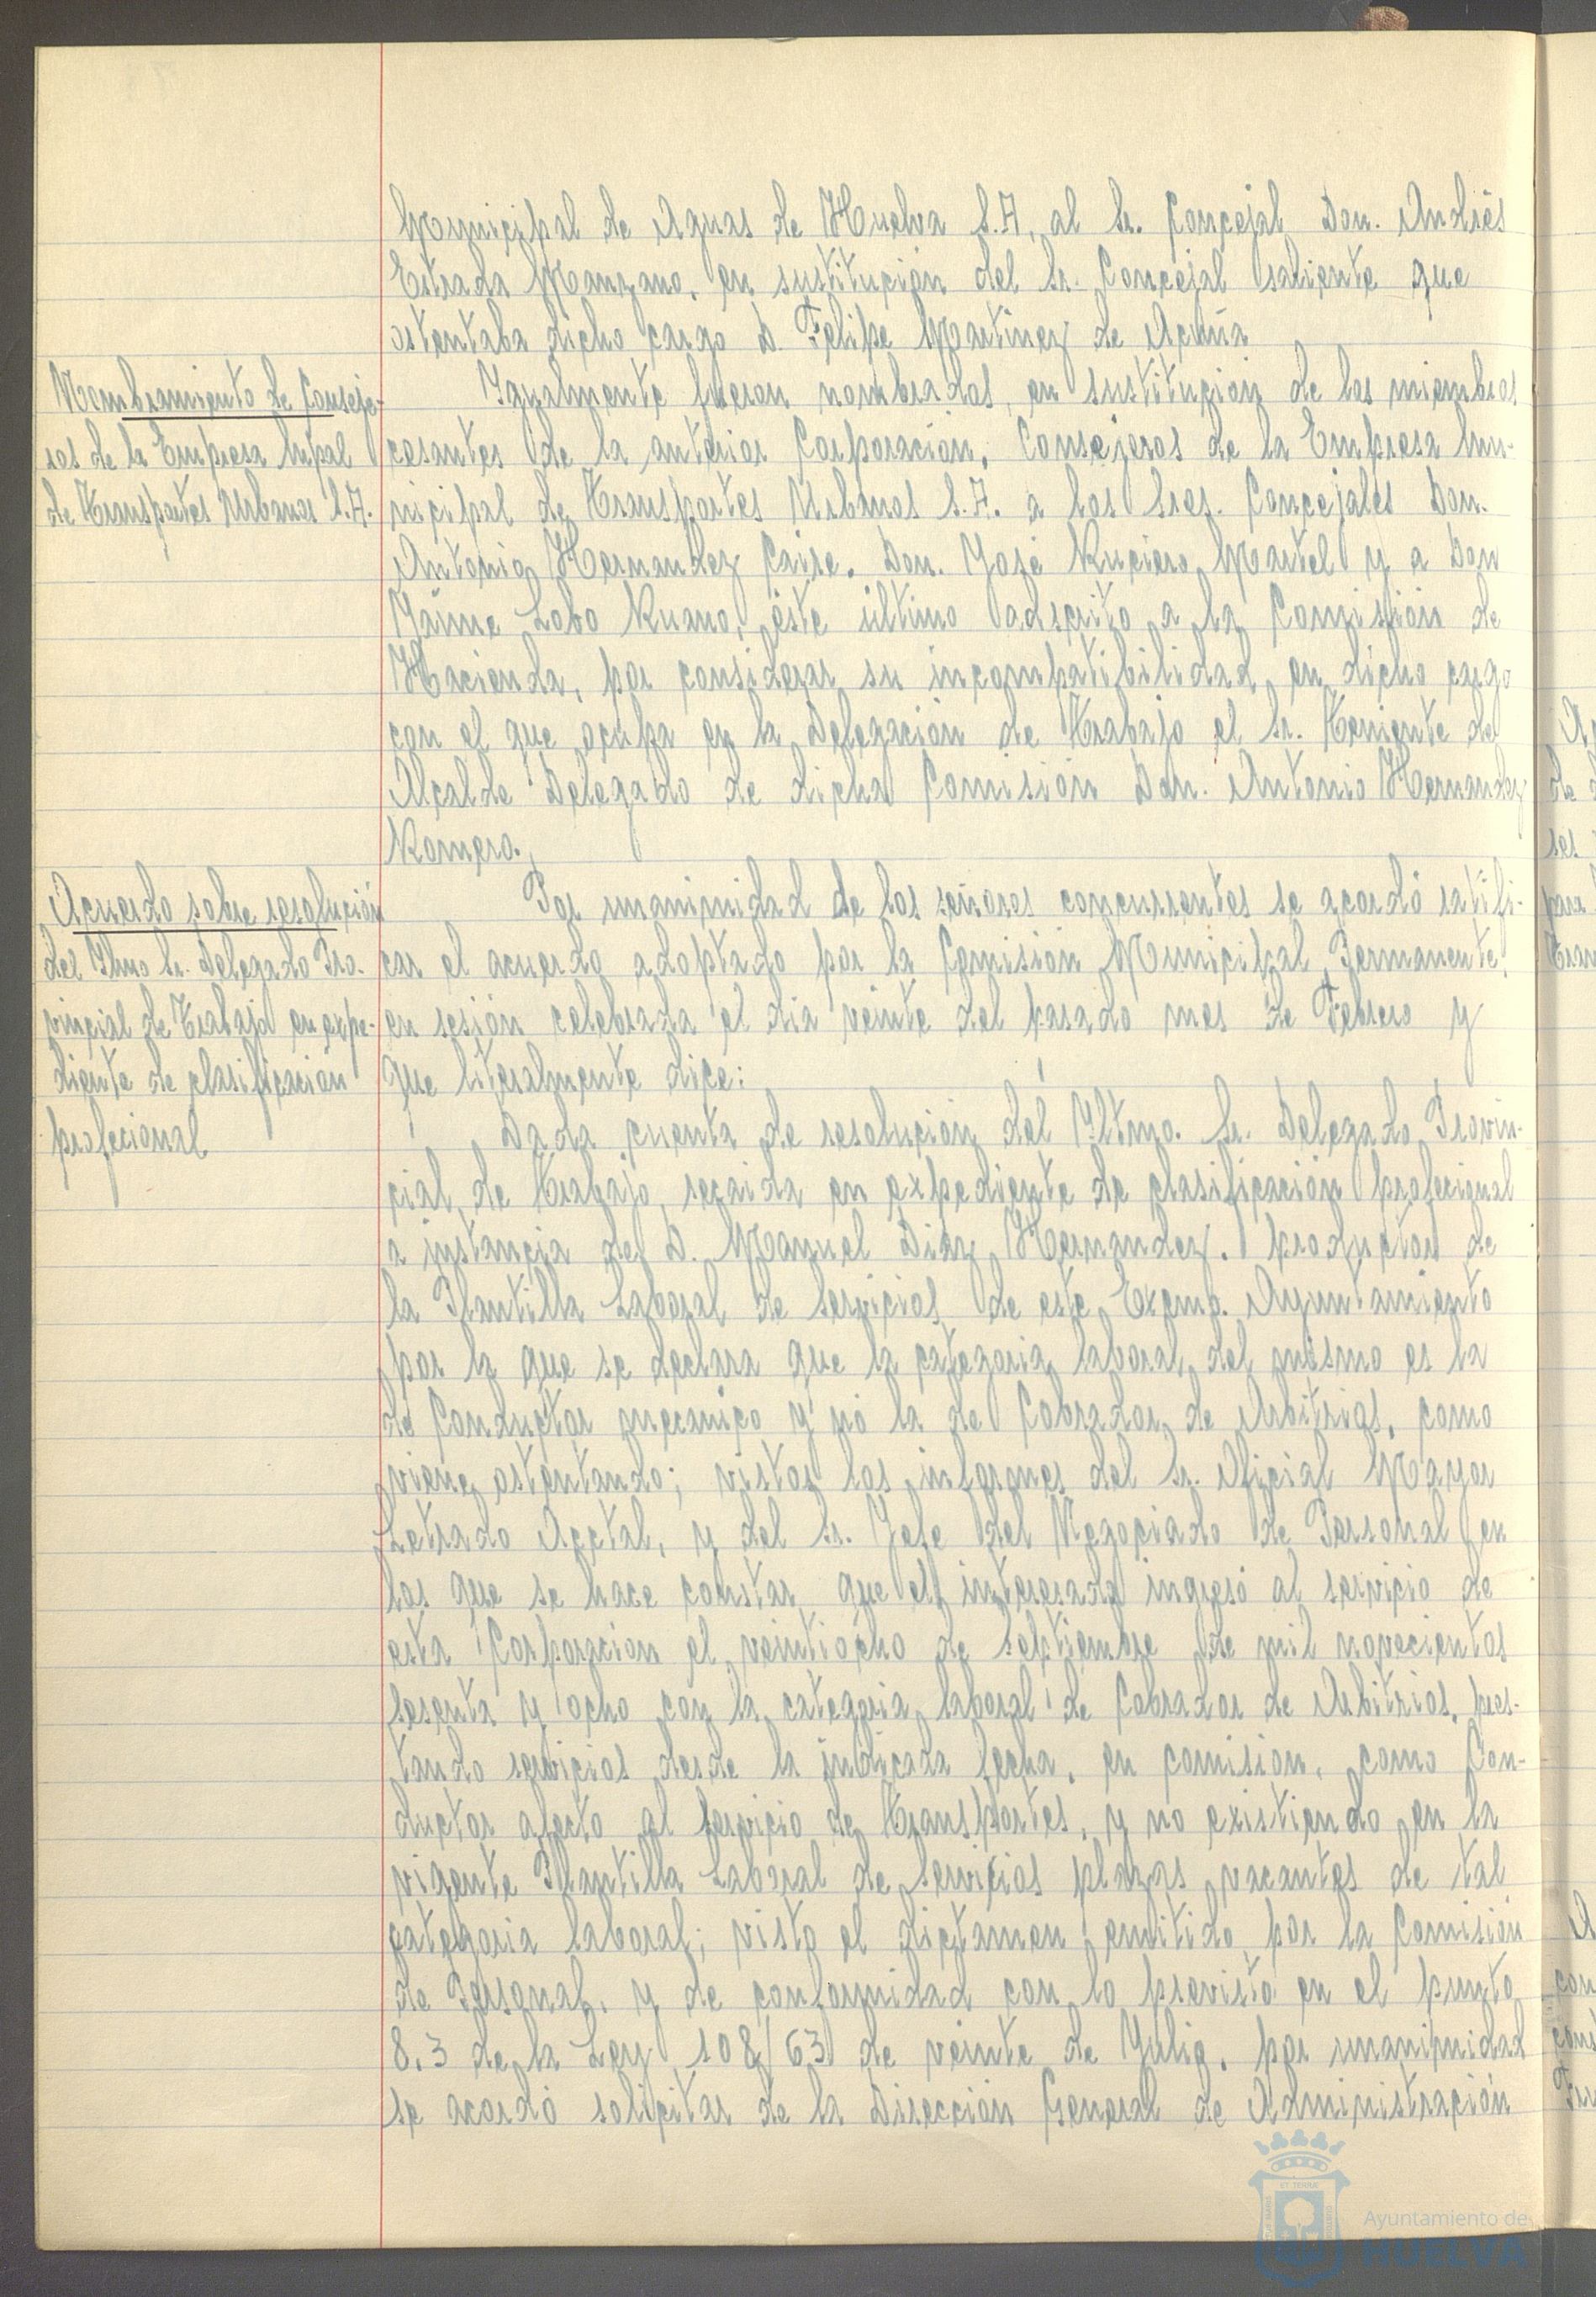 Municipal de Aguas de Huelva S.A. al Sr. Concejal Don. Andrés
Estrada Manzano, en sustitución del Sr. Concejal saliente que
ostentaba dicho cargo D. Felipe Martinez de Acuña
Nombramiento de Conseje-
ros de la Empresa Mpal
de Transportes Urbanos S.A.
Igualmente fueron nombrados, en sustitución de los miembros
cesantes de la anterior Corporación, Consejeros de la Empresa Mu-
nicipal de Transportes Urbanos S.A. a los Sres. Concejales Don.
Antonio Hernandez Caire. Don. José Ruciero Martel y a Don
Jaime Lobo Ruano, éste último adscrito a la Comisión de
Hacienda, por considerar su incompatibilidad en dicho cargo
con el que ocupa en la Delegación de Trabajo el Sr. Teniente de
Alcalde Delegado de dicha Comisión Don. Antonio Hernandez
Romero.
Acuerdo sobre resolución
del Iltmo Sr. Delegado Pro-
vincial de Trabajo en expe-
diente de clasificación
profecional
Por unanimidad de los señores concurrentes se acordó ratifi-
car el acuerdo adoptado por la Comisión Municipal Permanente,
en sesión celebrada el dia veinte del pasado mes de Febrero y
que literalmente dice:
Dada cuenta de resolución del Iltmo. Sr. Delegado Provin-
cial de Trabajo, recaida en expediente de clasificación profecional
a instancia de D. Manuel Diaz Hernandez. productor de
la Plantilla Laboral de Servicios de este Excmo. Ayuntamiento
por la que se declara que la categoria laboral del mismo es la
de Conductor mecanico y nó la de Cobrador de Arbitrios, como
viene ostentando; vistos los informes del Sr. Oficial Mayor
Letrado Acctal, y del Sr. Jefe del Negociado de Personal en
los que se hace constar que el interesado ingresó al servicio de
esta Corporación el veintiocho de Septiembre de mil novecientos
sesenta y ocho con la categoria laboral de Cobrador de Arbitrios, pres-
tando servicios desde la indicada fecha, en comisión, como Con-
ductor afecto al Servicio de Transportes, y no existiendo en la
vigente Plantilla Laboral de Servicios plazas vacantes de tal
categoria laboral; visto el dictamen emitido por la Comisión
de Personal, y de conformidad con lo previsto en el punto
8.3 de la Ley 108/63 de veinte de Julio, por unanimidad
se acordó solicitar de la Dirección General de Administración
Ayuntamiento de
HUELVA